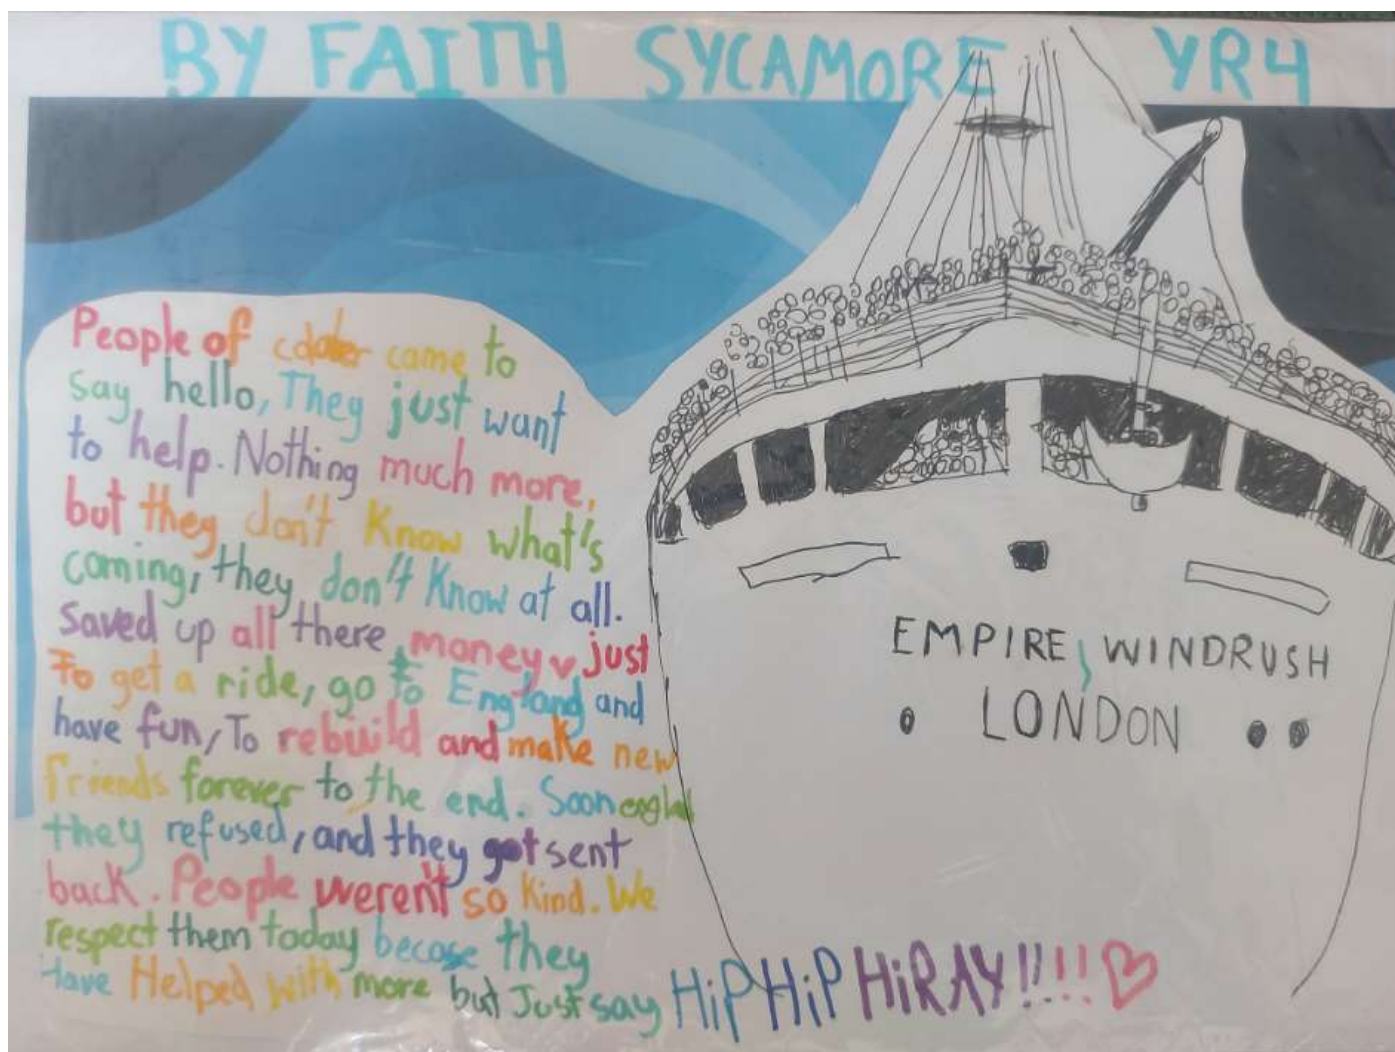 BY FAITH SYCAMORE YR4
People of coloer came to
say hello, They just want
to help. Nothing much more,
but they don't know what's
coming, they don't know at all.
Saved up all there money just
To get a ride, go to England and
have fun, To rebuild and make new
friends forever to the end. Soon
they refused, and they got sent
back. People weren't so kind. We
respect them today becose they
Have Helped with more but Just say HiP HiP HiRAY!!!!
EMPIRE, WINDRUSH
LONDON